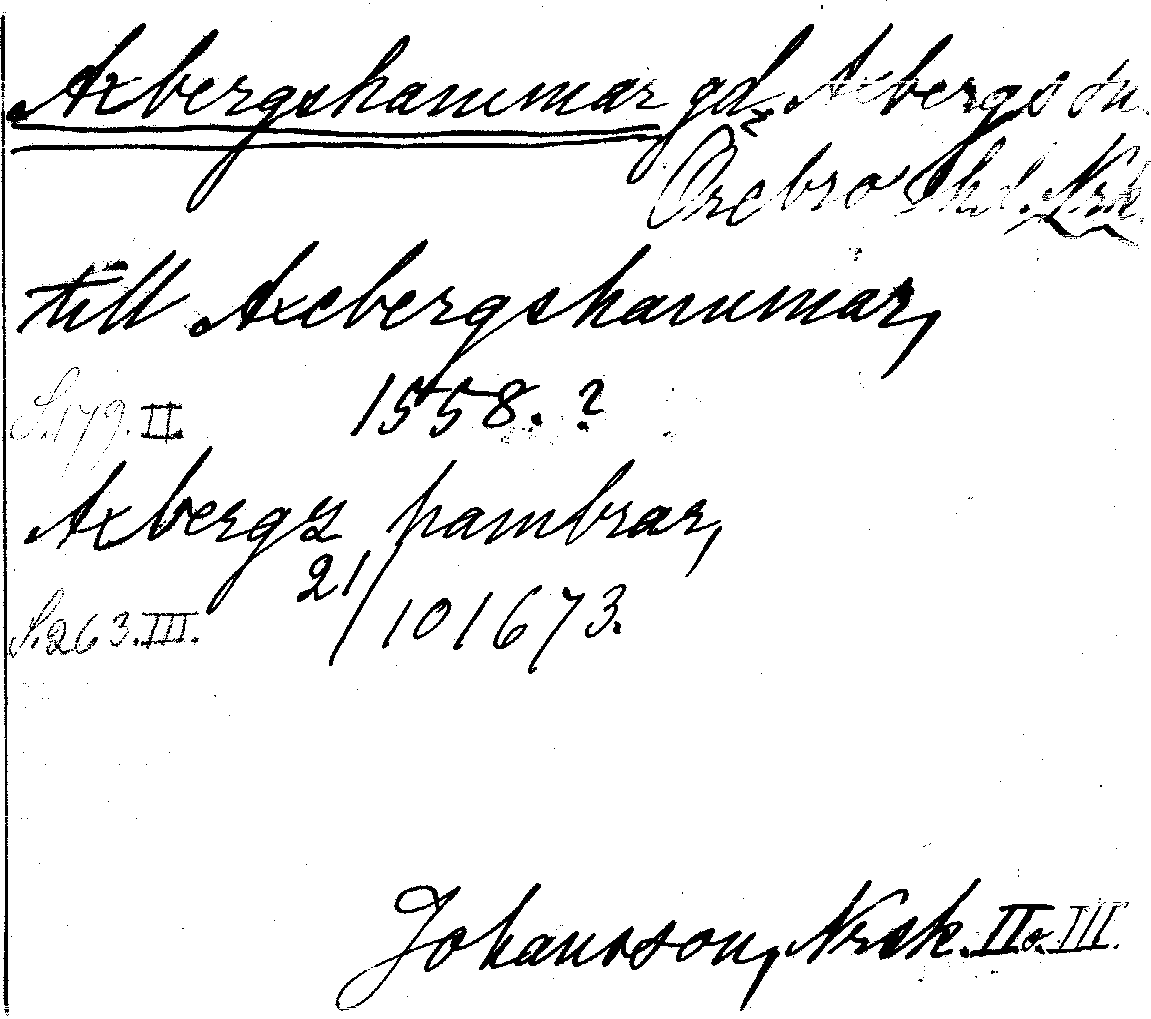 Axbergshammar gd. Axbergs sn.
Örebro hd. Nrk.
till Axebergshammar,
S. 179. II. 1558. ?
Axbergz hambrar,
S. 263. III. 21/10 1673.
Johansson, Nrck. II o. III.